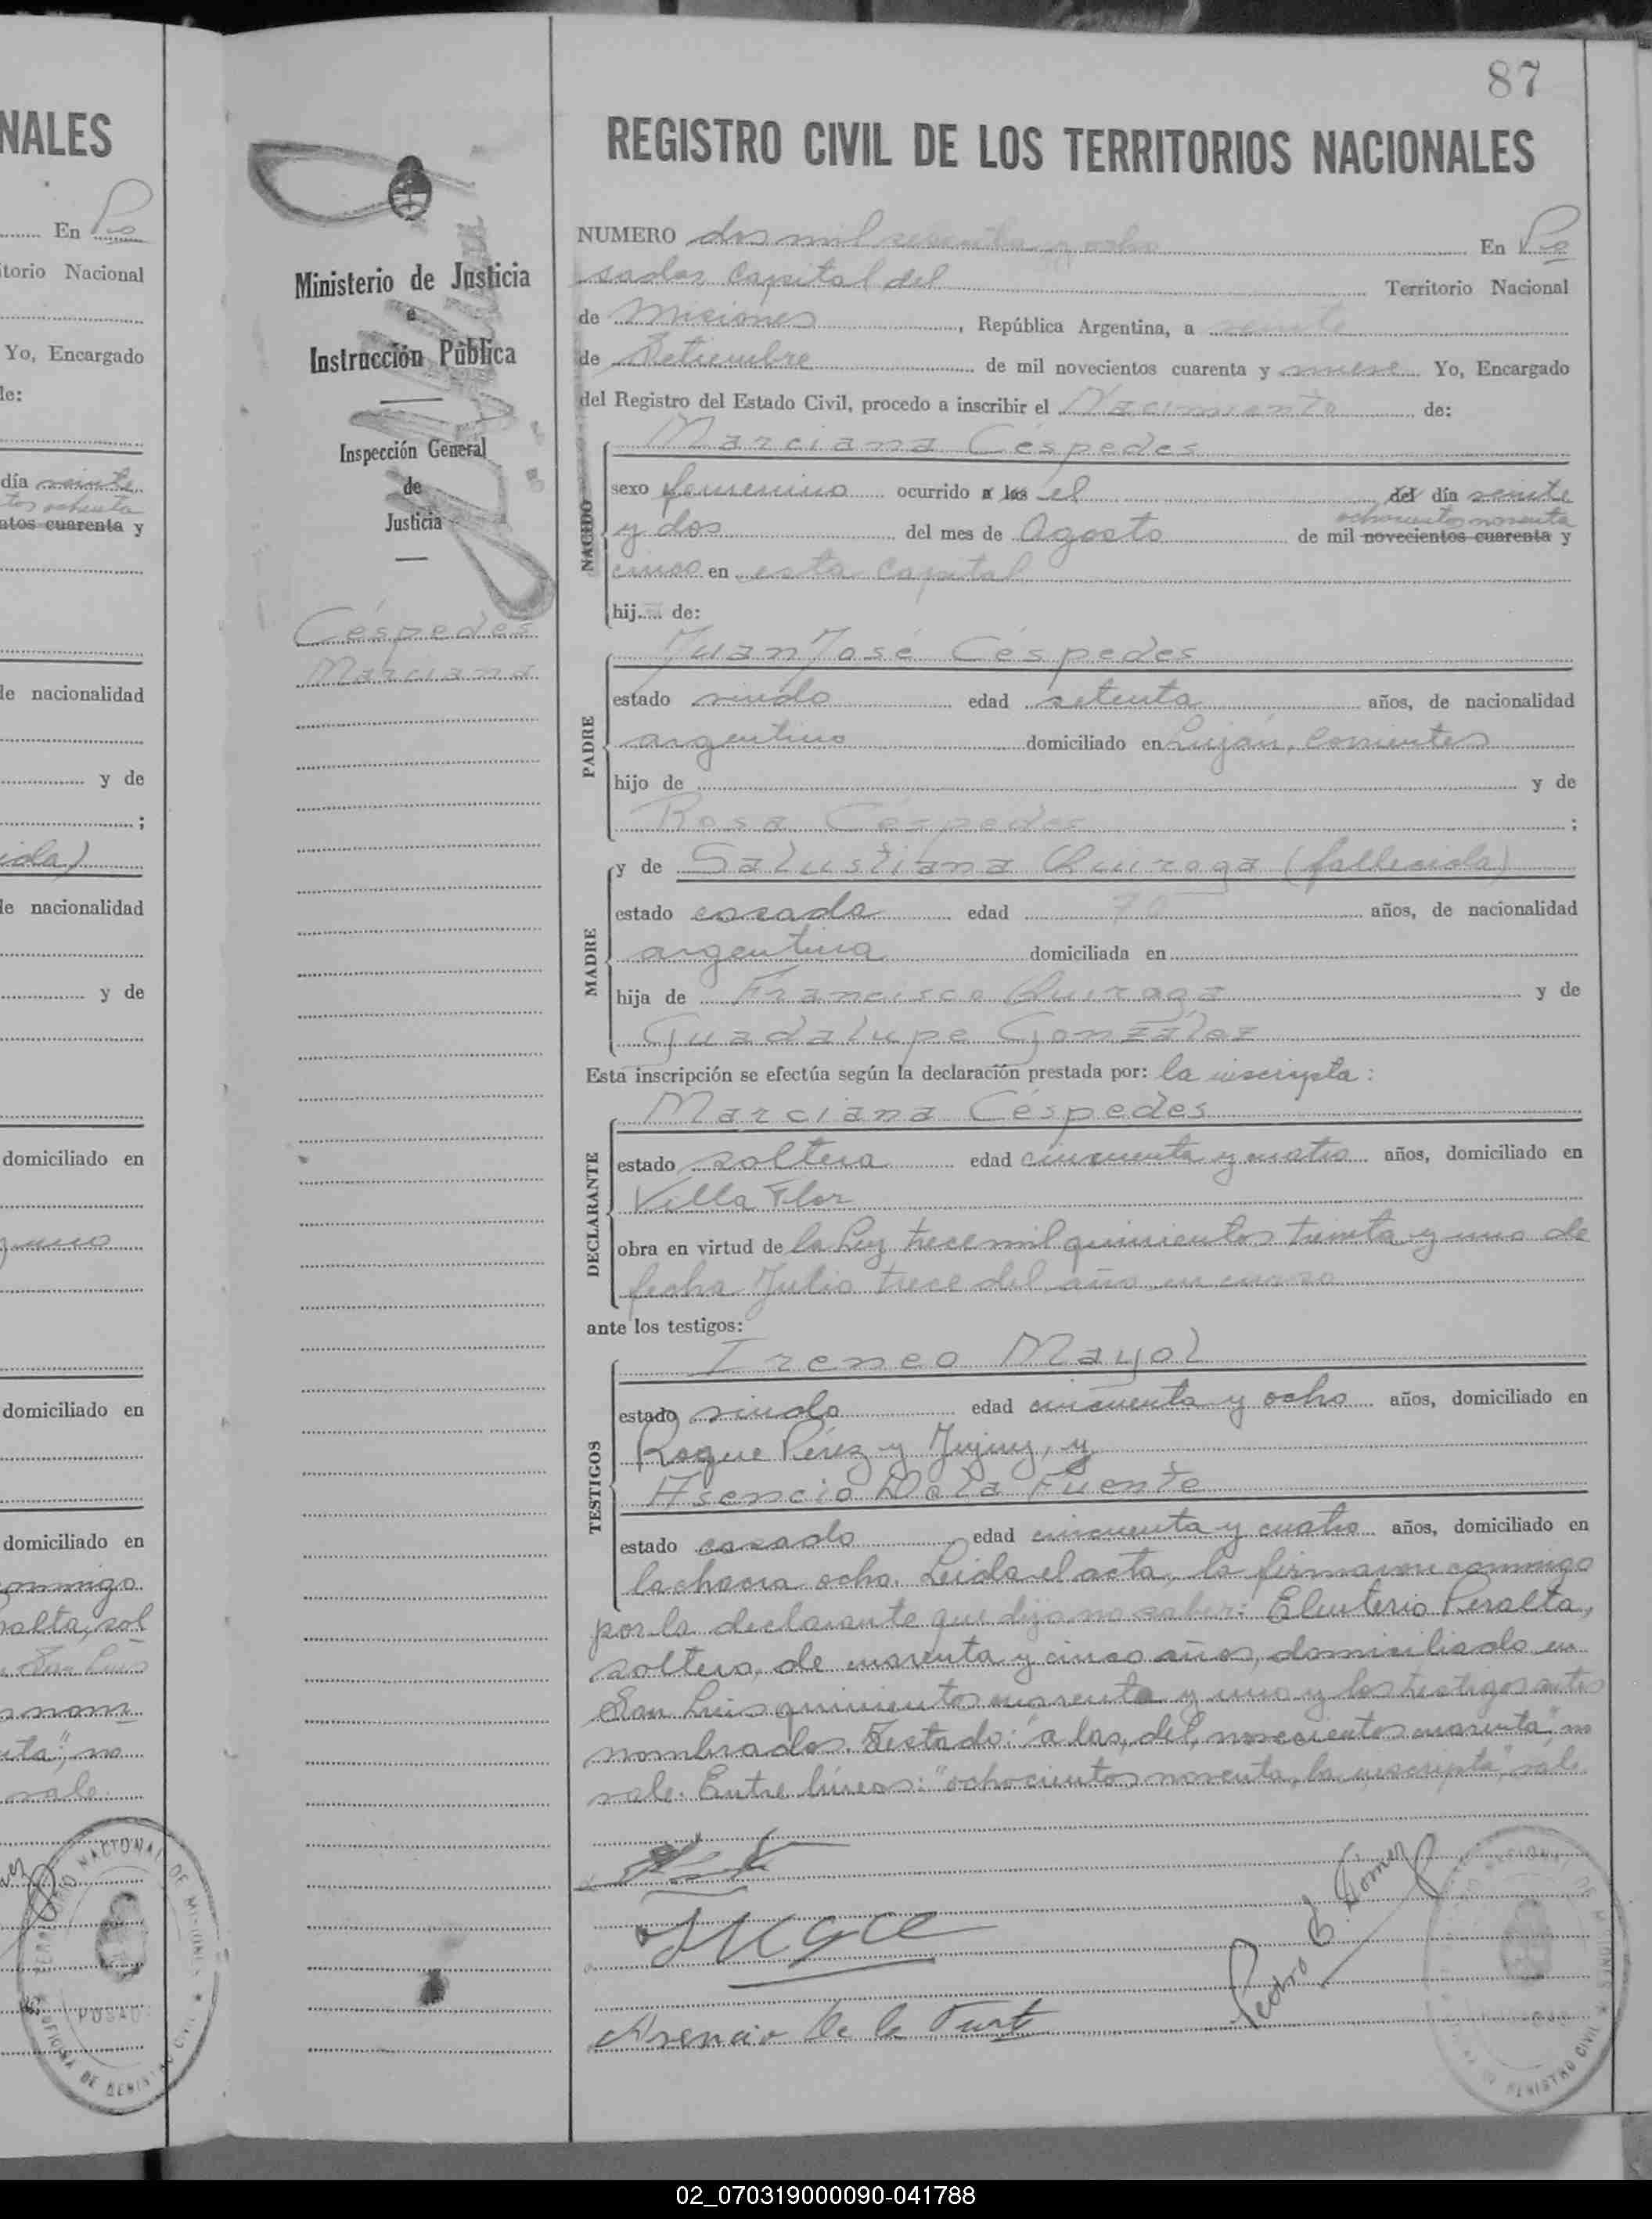 NALES
En Po
itorio Nacional
Yo, Encargado
de:
día veinte
tos ochenta
ntos cuarenta y
de nacionalidad
y de
;
cida)
de nacionalidad
y de
domiciliado en
y uno
domiciliado en
domiciliado en
conmigo
ralta, sol
San Luis
nom
nta", no
vale.
87
Ministerio de Justicia
e
Instrucción Pública
Inspección General
de
Justicia
Céspedes
Marciana
REGISTRO CIVIL DE LOS TERRITORIOS NACIONALES
NUMERO dos mil sesenta y ocho En Po
sadas Capital del Territorio Nacional
de Misiones, República Argentina, a veinte
de Setiembre de mil novecientos cuarenta y nueve Yo, Encargado
del Registro del Estado Civil, procedo a inscribir el Nacimiento de:
NACIDO
Marciana Céspedes
sexo femenino ocurrido a las el del día veinte
ochocientos noventa
y dos del mes de Agosto de mil novecientos cuarenta y
cinco en esta Capital
hij de:
PADRE
Juan José Céspedes
estado viudo edad setenta años, de nacionalidad
argentino domiciliado en Luján, Corrientes
hijo de y de
Rosa Céspedes ;
MADRE
y de Salustiana Quiroga (fallecida)
estado casada edad años, de nacionalidad
argentina domiciliada en
hija de Francisco Quiroga y de
Guadalupe González
Esta inscripción se efectúa según la declaración prestada por: la inscripta:
DECLARANTE
Marciana Céspedes
estado soltera edad cincuenta y cuatro años, domiciliado en
Villa Flor
obra en virtud de la Ley trece mil quinientos treinta y uno de
fecha Julio trece del año en curso
ante los testigos:
TESTIGOS
Ireneo Mayol
estado viudo edad cincuenta y ocho años, domiciliado en
Roque Pérez y Jujuy, y
Asencio De la Fuente
estado casado edad cincuenta y cuatro años, domiciliado en
la chacra ocho. Leída el acta, la firmaron conmigo
por la declarante que dijo no saber: Eleuterio Peralta,
soltero, de cuarenta y cinco años, domiciliado en
San Luis quinientos cuarenta y uno y los testigos antes
nombrados. Testado: "a las, del, novecientos cuarenta", no
vale. Entre líneas: "ochocientos noventa, la inscripta", vale.
Asencio De la Fuente
Pedro E. Gómez
NACIONAL DE MISIONES
POSAD
OFICINA DE REGISTRO CIVIL
REGISTRO CIVIL
02_070319000090-041788